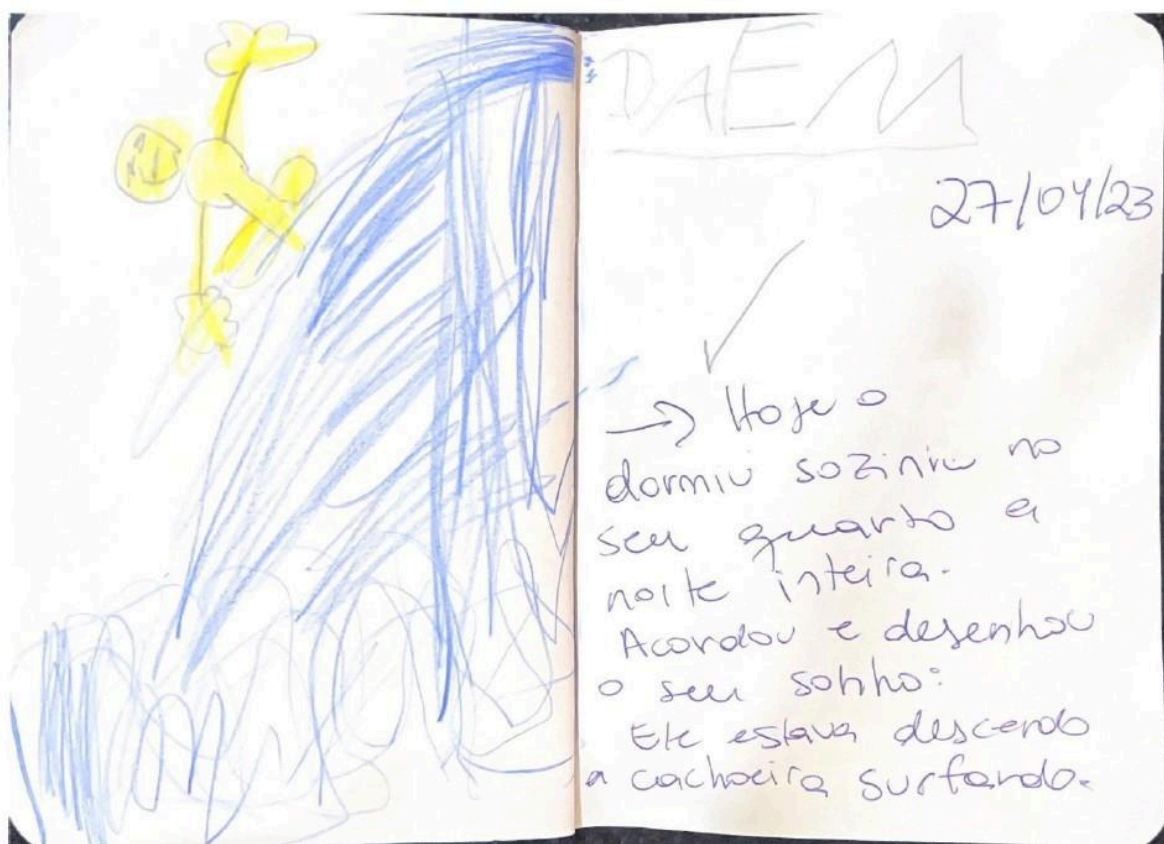 DAEM
27/04/23
→ Hoje o
dormiu soziniu no
seu quarto a
noite inteira.
Acordou e desenhou
o seu sonho:
Ele estava descendo
a cachoeira surfando.